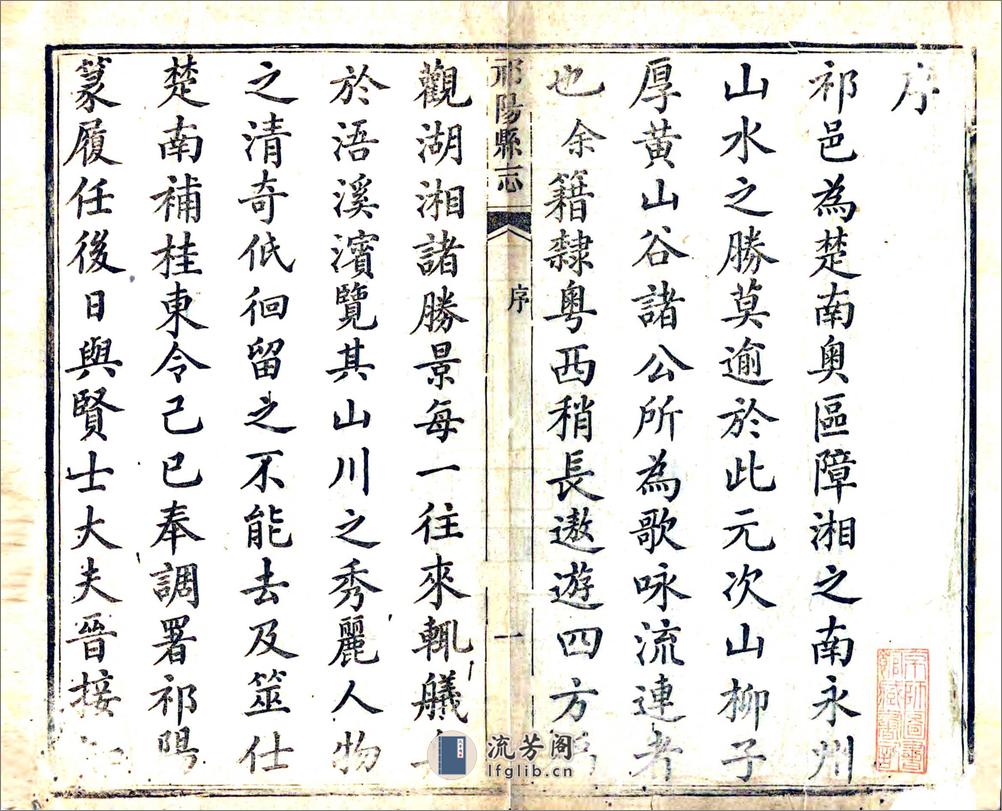 序
祁邑為楚南奧區障湘之南永州
山水之勝莫逾於此元次山柳子
厚黃山谷諸公所為歌咏流連者
也余籍隸粵西稍長遨遊四方
祁陽縣志
序
一
觀湖湘諸勝景每一往來輒艤
於浯溪濱覽其山川之秀麗人物
之清奇低徊留之不能去及筮仕
楚南補桂東令己巳奉調署祁陽
篆履任後日與賢士大夫晉接
流芳阁
lfglib.cn